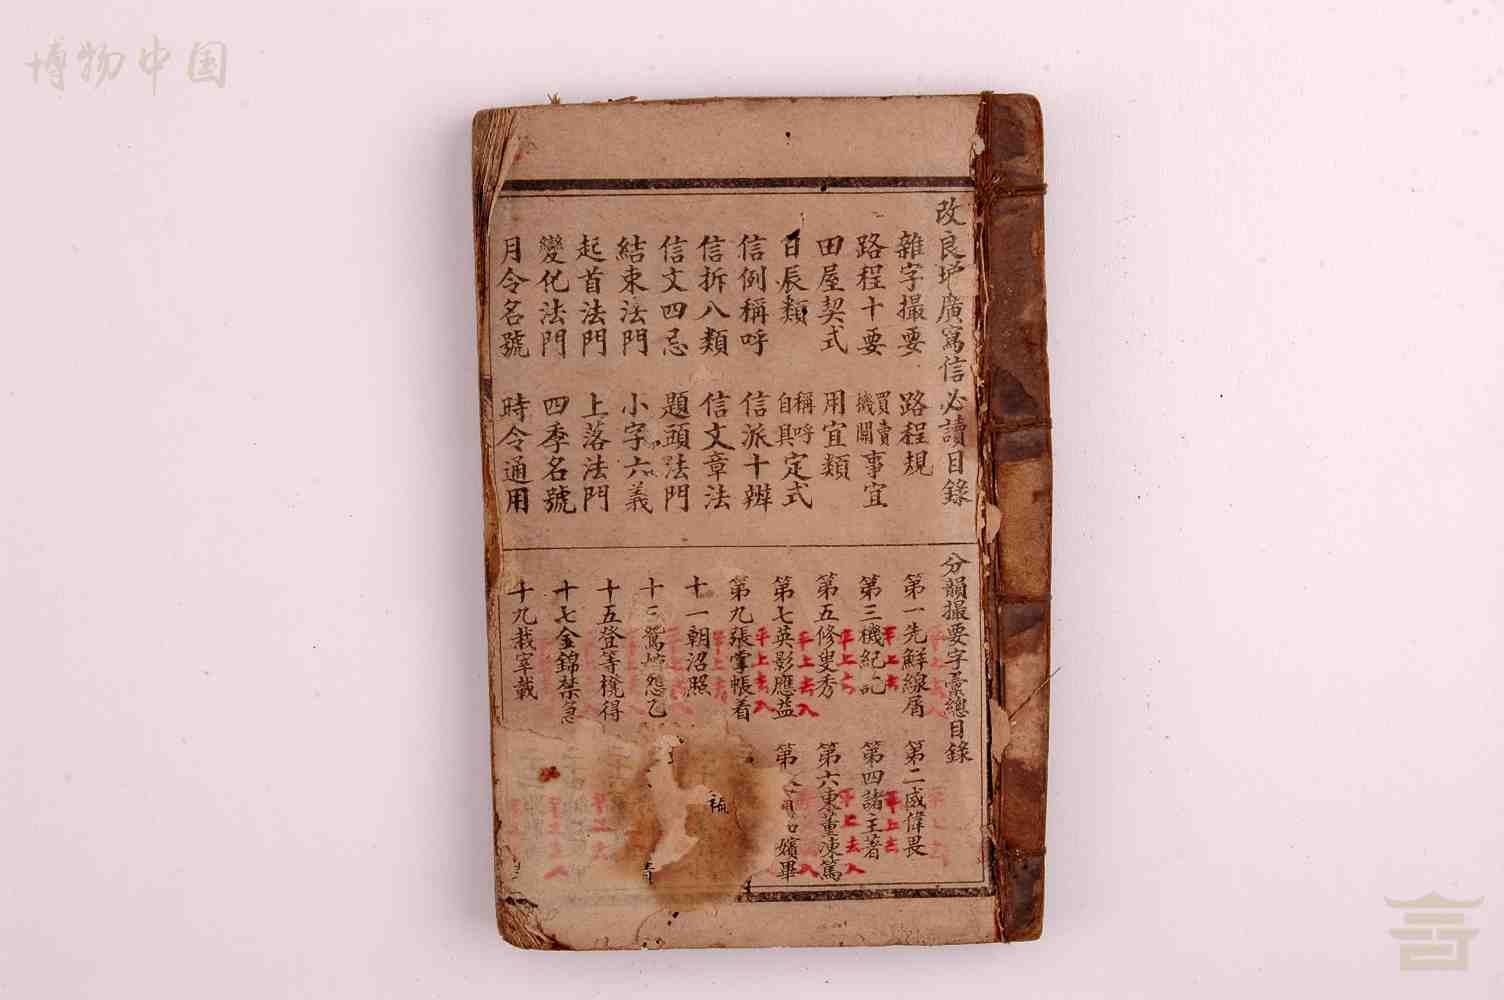 博物中国
改良增廣寫信必讀目錄
雜字撮要 路程規
路程十要 買賣機關事宜
田屋契式 用宜類
日辰類 稱呼自具定式
信例稱呼 信派十辨
信拆八類 信文章法
信文四忌 題頭法門
結束法門 小字六義
起首法門 上落法門
變化法門 四季名號
月令名號 時令通用
分韻撮要字彙總目錄
第一先鮮線屑 平上去入 第二威偉畏 平上去
第三機紀記 平上去 第四諸主著 平上去
第五修叟秀 平上去 第六東董凍篤 平上去入
第七英影應益 平上去入 第 嬪畢 入
第九張掌帳着 平上去入
十一朝沼照 平上去
十三鴛 怨乙
十五登等櫈得
十七金錦禁急
十九栽宰載